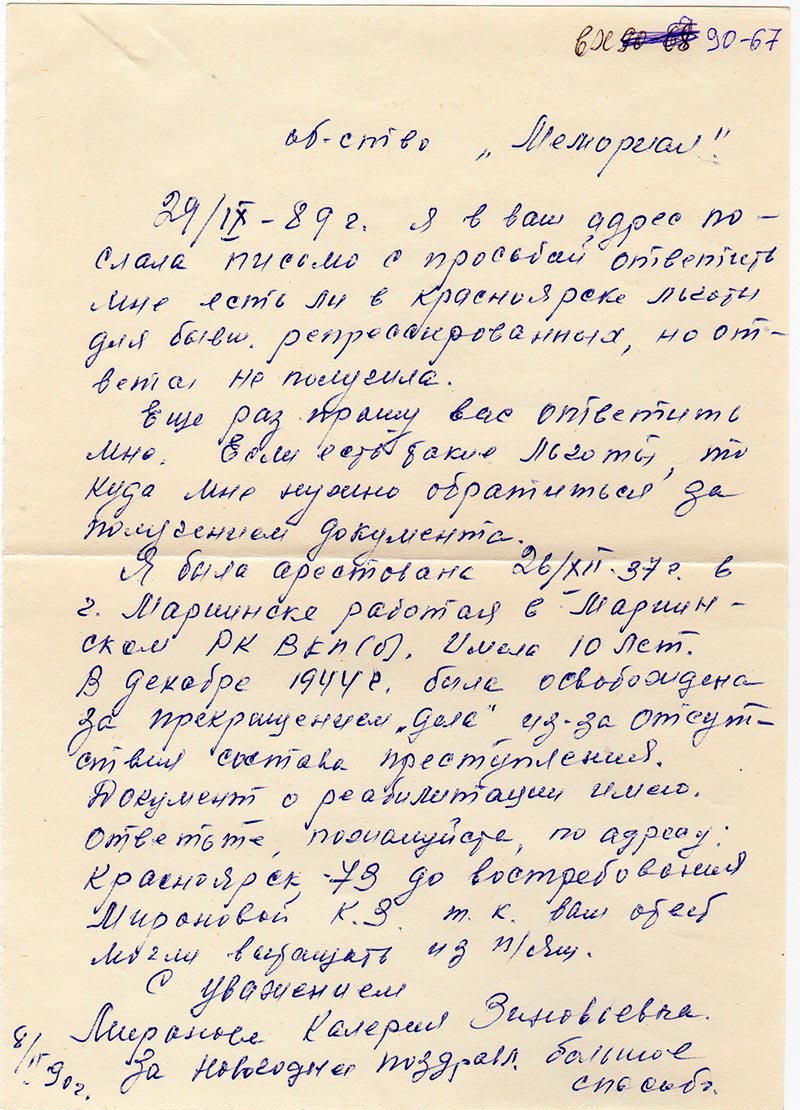 вх 90-67
об-ство „Мемориал".
29/IX-89 г. я в ваш адрес по-
слала письмо с просьбой ответить
мне есть ли в Красноярске льготы
для бывш. репрессированных, но от-
вета не получила.
Еще раз прошу вас ответить
мне. Если есть такие льготы, то
куда мне нужно обратиться за
получением документа.
Я была арестована 26/XII-37 г. в
г. Мариинске работая в Мариин-
ском РК ВКП(б). Имела 10 лет.
В декабре 1944 г. была освобождена
за прекращением „дела" из-за отсут-
ствия состава преступления.
Документ о реабилитации имею.
Ответьте, пожалуйста, по адресу:
Красноярск, -73 до востребования
Мироновой К.З. т.к. ваш ответ
могли вытащить из п/ящ.
С уважением
Миронова Калерия Зиновьевна.
8/II 90 г.
За новогоднее поздравл. большое
спасибо.